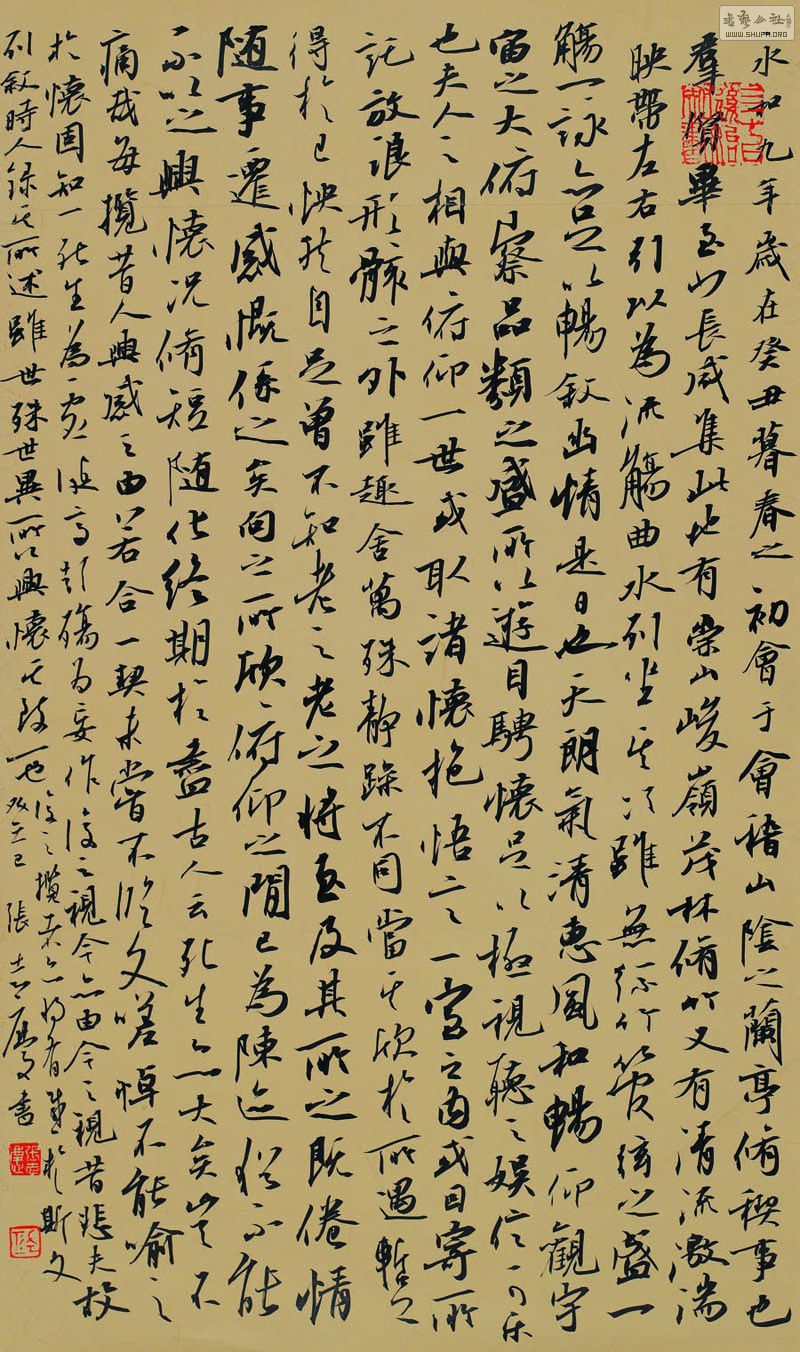 永和九年歲在癸丑暮春之初會于會稽山陰之蘭亭脩稧事也
羣賢畢至少長咸集此地有崇山峻嶺茂林脩竹又有清流激湍
映帶左右引以為流觴曲水列坐其次雖無絲竹管弦之盛一
觴一詠亦足以暢敘幽情是日也天朗氣清惠風和暢仰觀宇
宙之大俯察品類之盛所以遊目騁懷足以極視聽之娛信可樂
也夫人之相與俯仰一世或取諸懷抱悟言一室之內或因寄所
託放浪形骸之外雖趣舍萬殊靜躁不同當其欣於所遇暫
得於己快然自足曾不知老之老之將至及其所之既倦情
随事遷感慨係之矣向之所欣俯仰之間已為陳迹猶不能
不以之興懷況脩短随化終期於盡古人云死生亦大矣豈不
痛哉每攬昔人興感之由若合一契未嘗不臨文嗟悼不能喻之
於懷固知一死生為虛誕齊彭殤為妄作後之視今亦由今之視昔悲夫故
列敘時人錄其所述雖世殊世異所以興懷其致一也後之攬者亦將有感於斯文
癸巳 張 書
書藝公社
www.SHUFA.ORG